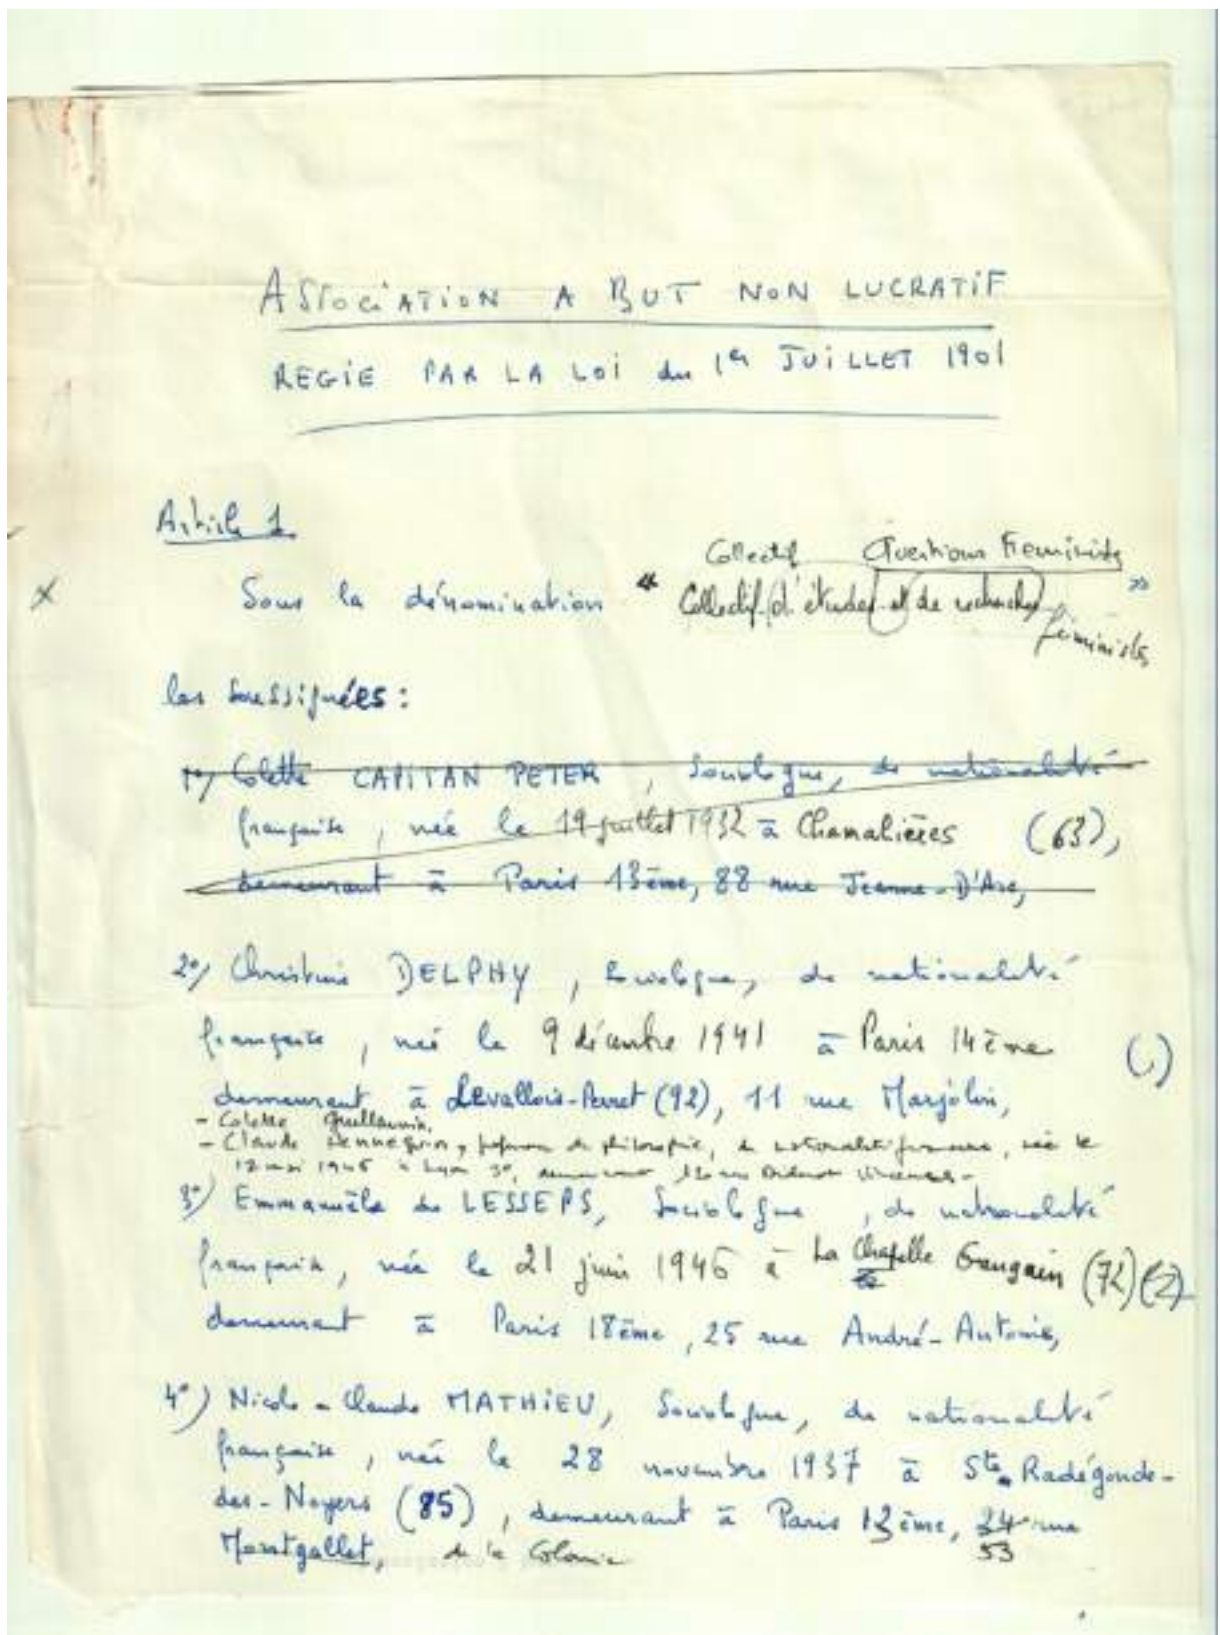 ASSOCIATION A BUT NON LUCRATIF
REGIE PAR LA LOI du 1er JUILLET 1901
Article 1
Collectif Questions Féministes
x Sous la dénomination " Collectif d'études et de recherches "
féministes
les soussignées :
1°) Colette CAPITAN PETER, Sociologue, de nationalité
française, née le 19 juillet 1932 à Chamalières (63),
demeurant à Paris 13ème, 88 rue Jeanne-D'Arc,
2°) Christine DELPHY, Sociologue, de nationalité
française, née le 9 décembre 1941 à Paris 14ème (,)
demeurant à Levallois-Perret (92), 11 rue Marjolin,
- Colette Guillaumin,
- Claude Hennequin, professeur de philosophie, de nationalité française, née le
12 mai 1946 à Lyon 3°, demeurant 12 rue Diderot Vincennes -
3°) Emmanuèle de LESSEPS, Sociologue, de nationalité
française, née le 21 juin 1946 à La Chapelle Gaugain (72)
demeurant à Paris 18ème, 25 rue André-Antoine,
4°) Nicole-Claude MATHIEU, Sociologue, de nationalité
française, née le 28 novembre 1937 à Ste Radégonde-
des-Noyers (85), demeurant à Paris 13ème, 24 rue
53
Montgallet, de la Colonie